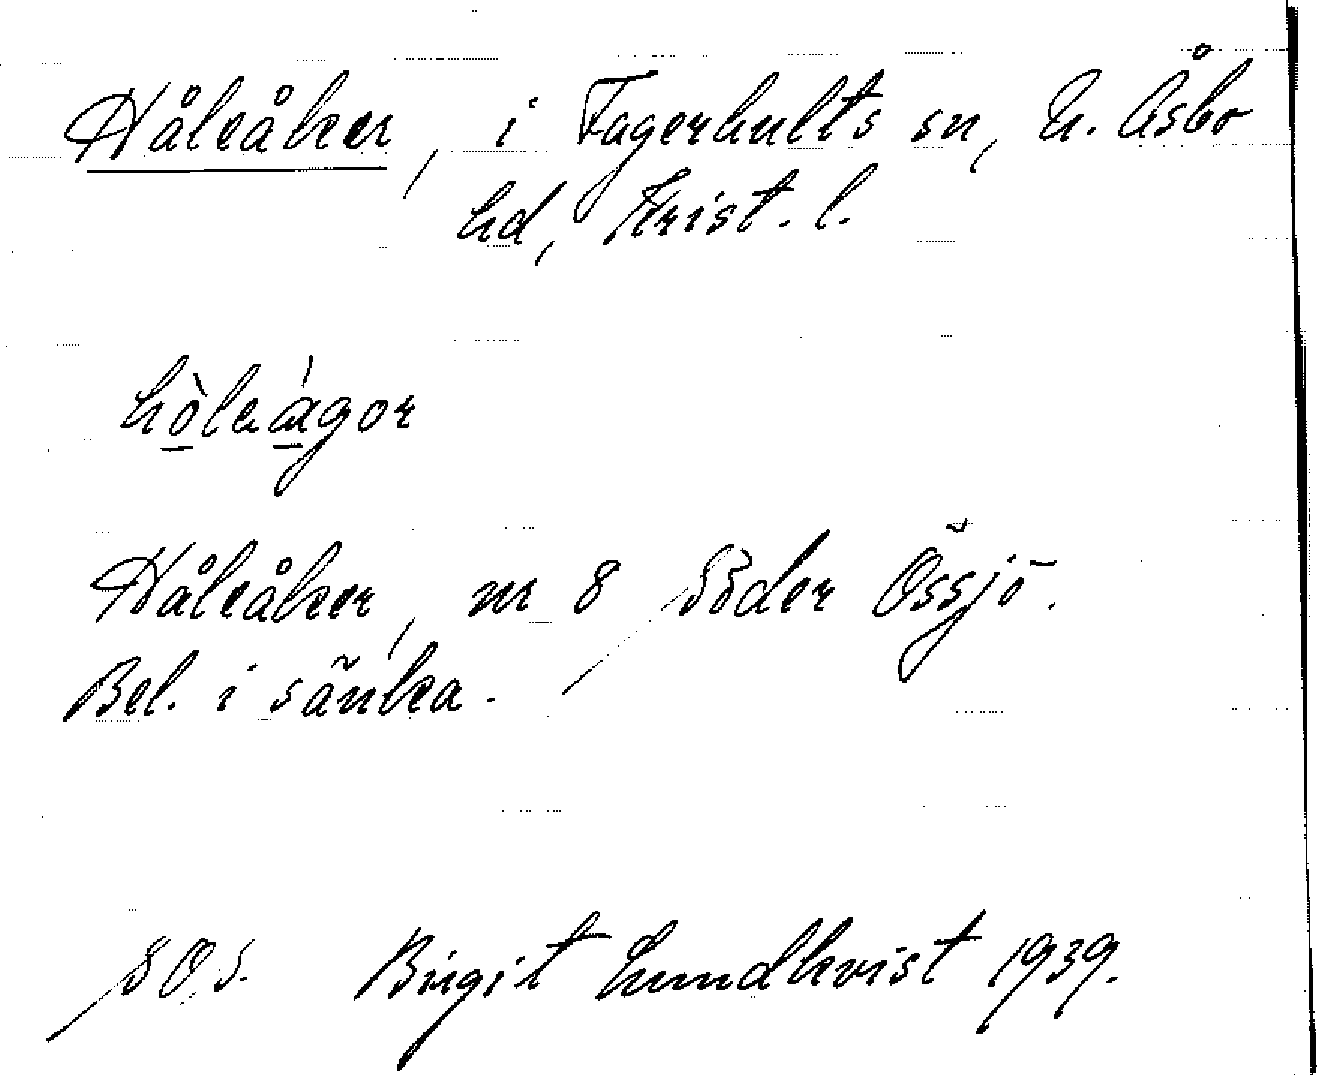 Håleåker, i Fagerhults sn, N. Åsbo
hd, Krist. l.
hòleágor
Håleåker, nr 8 Söder Össjö.
Bel. i sänka.
S O S. Birgit Lundkvist 1939.